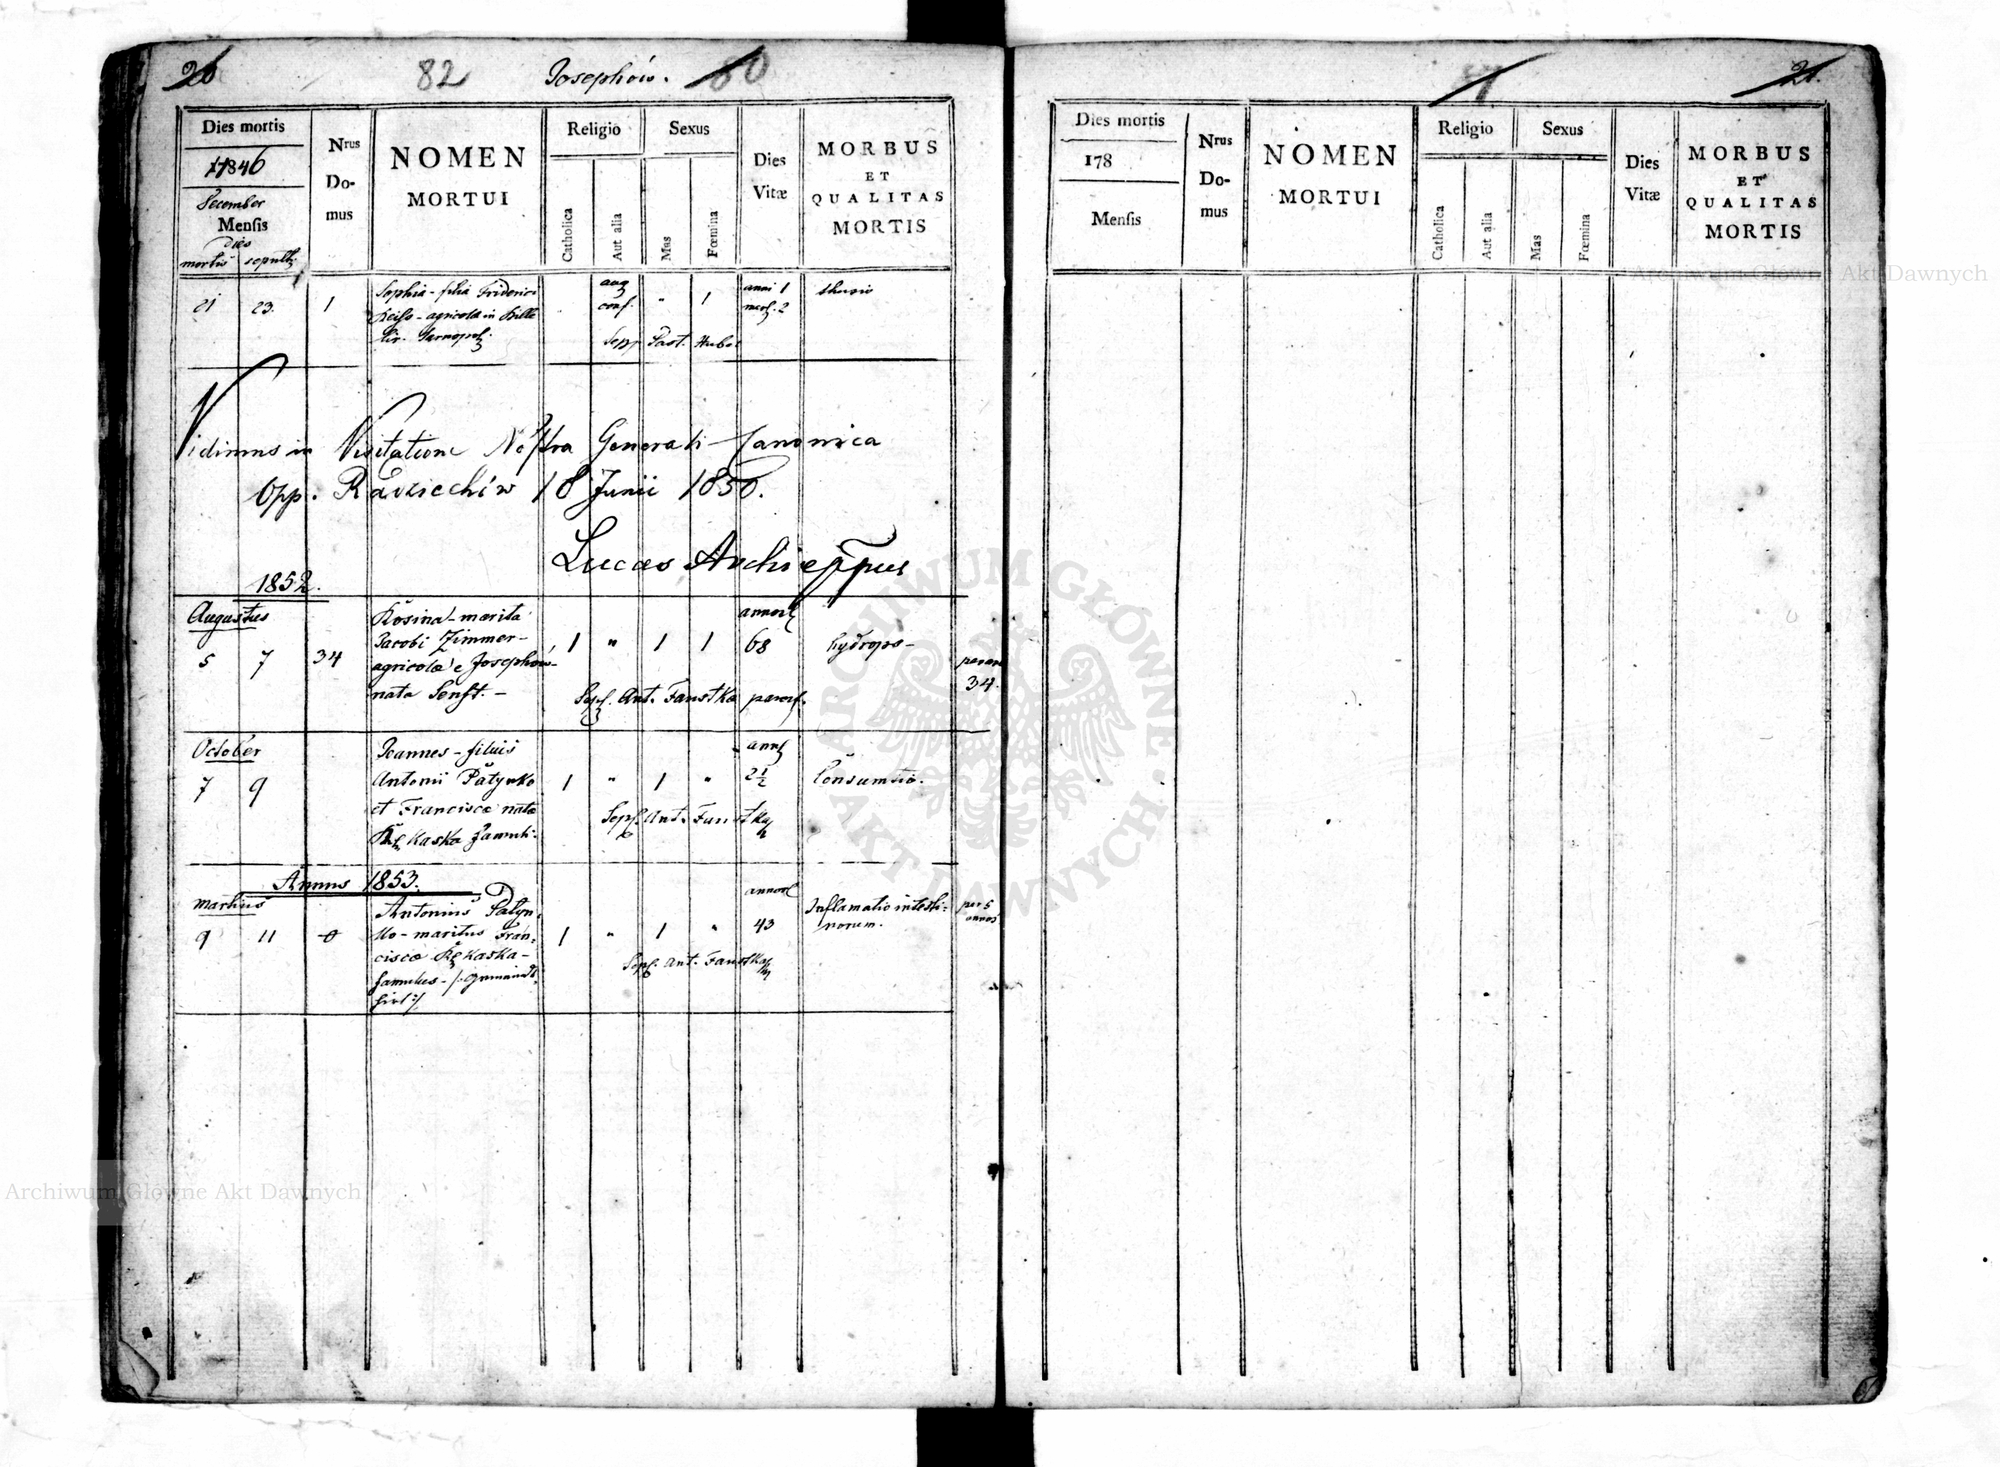 82 Josephów.
Dies mortis
1846
December
Mensis
Dies
mortis sepult
Nrus
Do-
mus
NOMEN
MORTUI
Religio
Catholica
Aut alia
Sexus
Mas
Fœmina
Dies
Vitæ
MORBUS
ET
QUALITAS
MORTIS
21 23. 1
Sophia - filia Friderici
agricolæ in
aug
conf.
" 1
anni 1
2
Past.
Vidimus in Visitatione Nostra Generali Canonica
Opp. Radziechów 18 Junii 1850.
Lucas Archieppus
1852.
Augustus
5 7 34
Rosina - marita
Jacobi Zimmer -
agricolæ e Josephów
nata Senft. -
1 " 1 1 68 hydrops -
Sepl. Ant. Faustka paroch.
34.
October
7 9
Joannes - filius
Antonii Patynko
et Franciscæ nata
1 " 1 " 2½ Consumtio.
Sepl. Ant. Faustka
Annus 1853.
Martius
9 11 0
Antonius Patyn-
ko - maritus Fran-
ciscæ Rękaska -
famulus -
1 " 1 " 43
Inflamatio intesti-
norum.
per 5
annos
Sepl. Ant. Faustka
Dies mortis
178
Mensis
Nrus
Do-
mus
NOMEN
MORTUI
Religio
Catholica
Aut alia
Sexus
Mas
Fœmina
Dies
Vitæ
MORBUS
ET
QUALITAS
MORTIS
ARCHIWUM GŁÓWNE AKT DAWNYCH
Archiwum Główne Akt Dawnych
Archiwum Główne Akt Dawnych